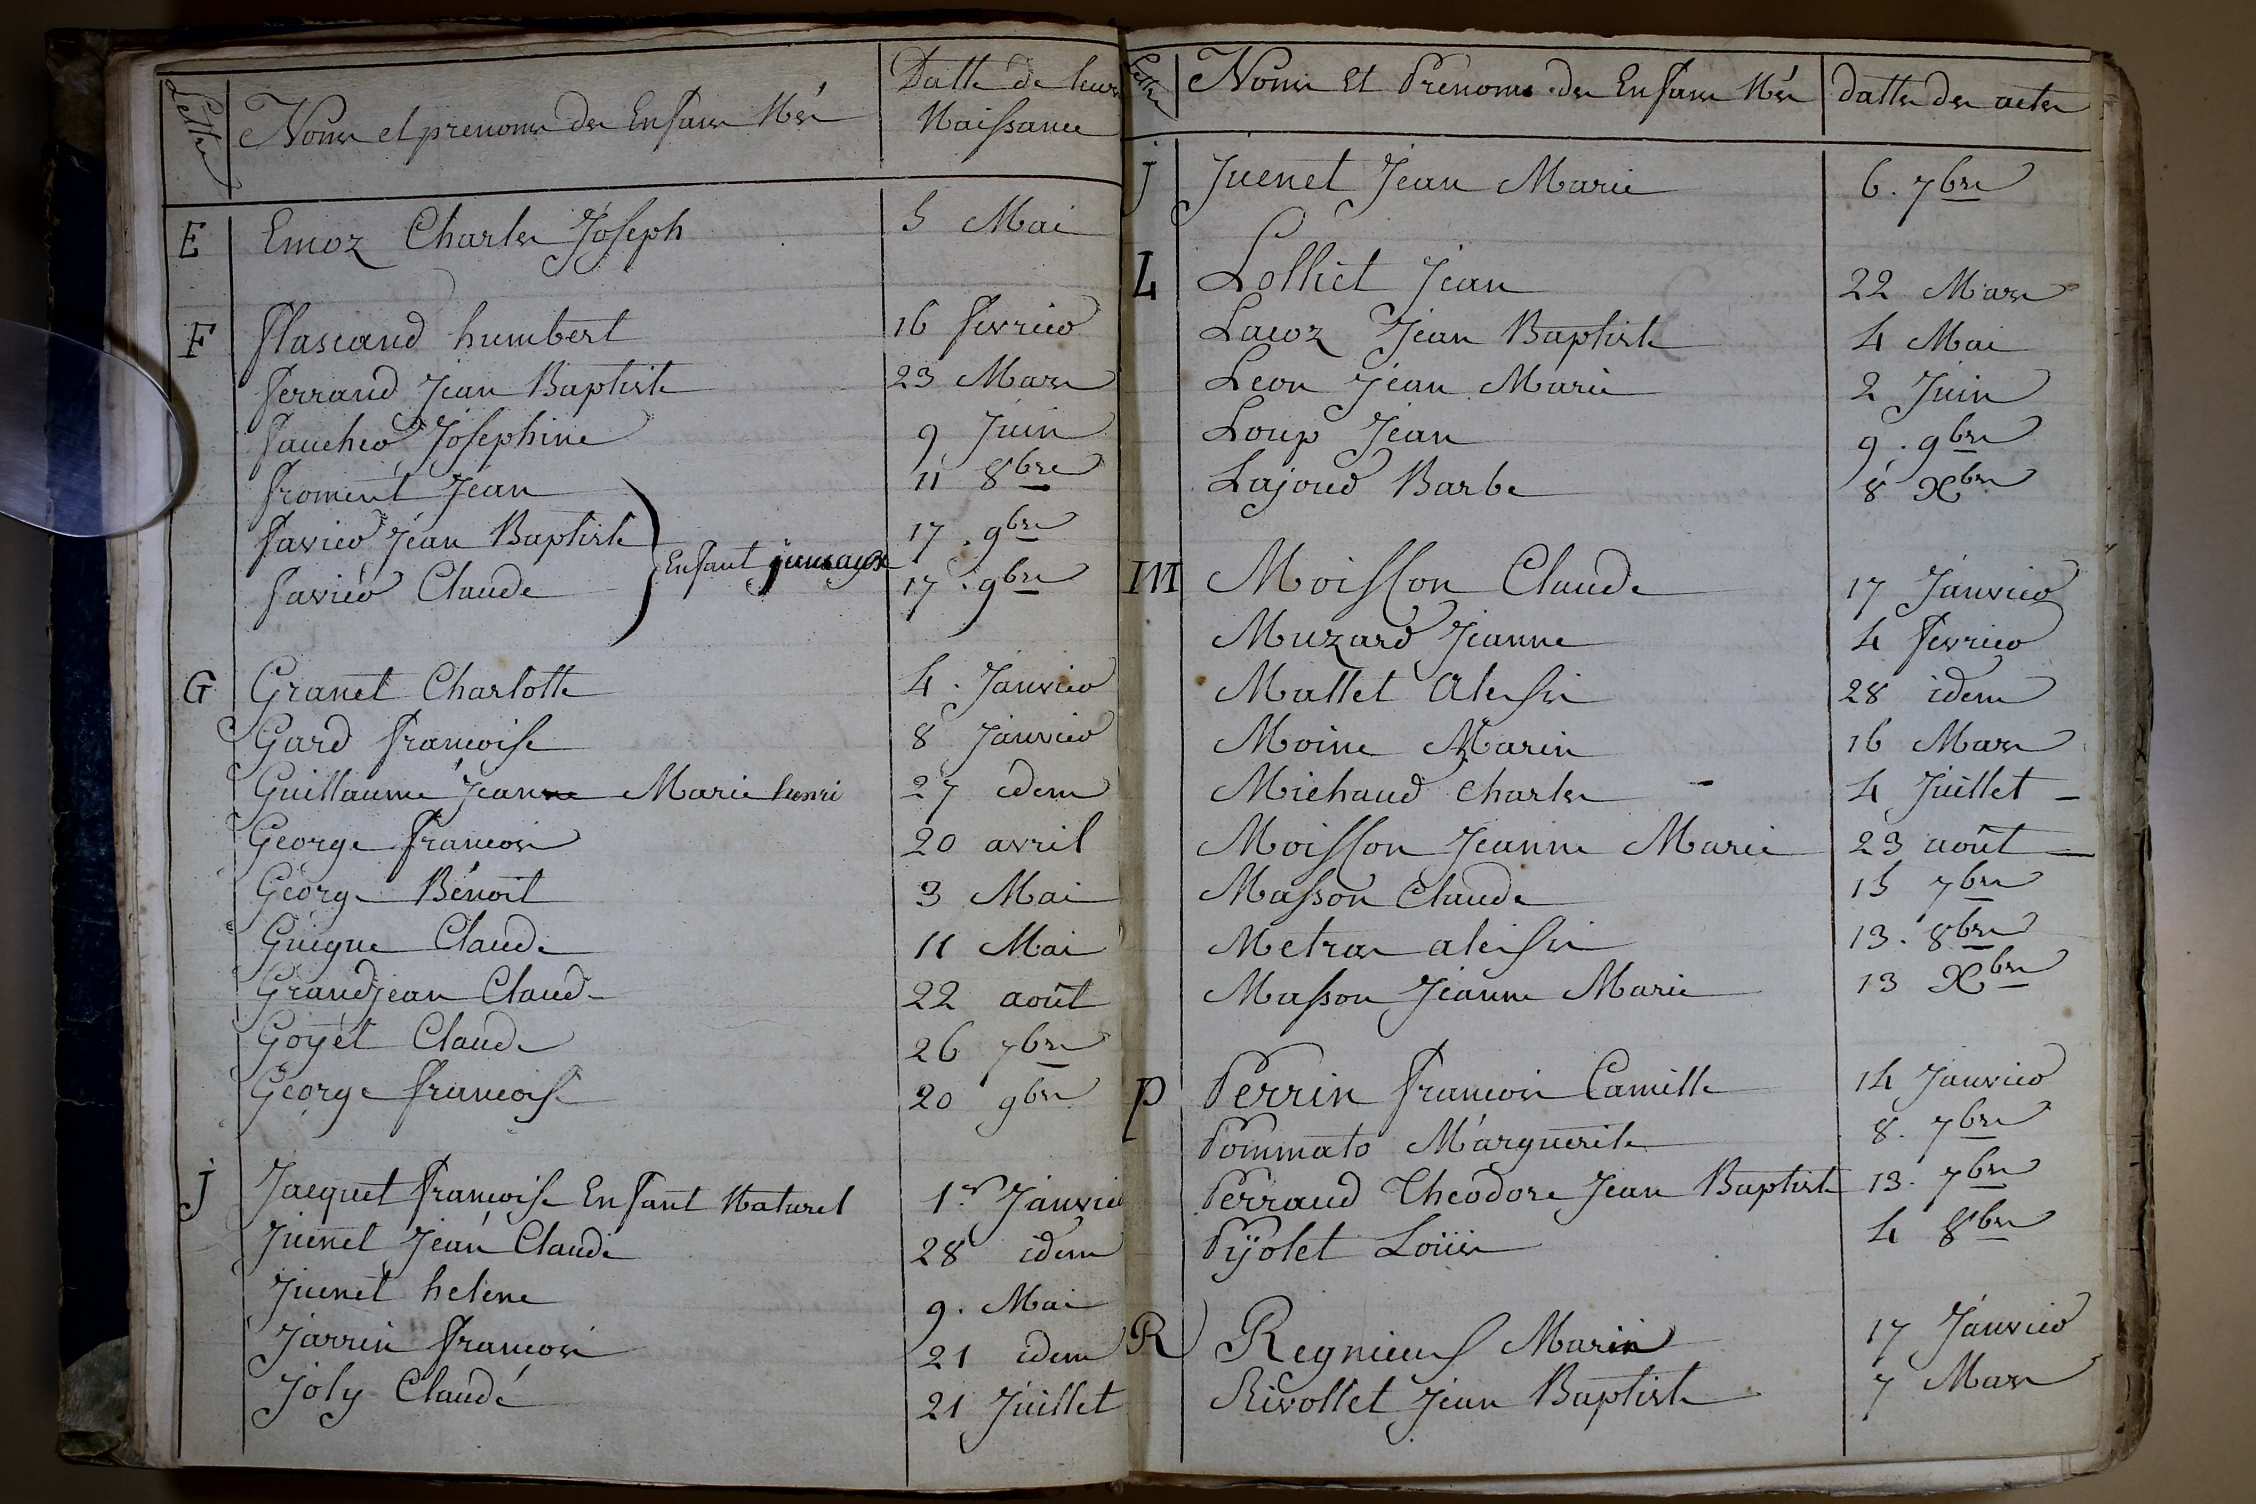 Lettre
Noms et prenoms des Enfans Nés
Datte de leurs
Naissance
E Emoz Charles Joseph 5 Mai
F flascaud humbert 16 fevrier
ferrand Jean Baptiste 23 Mars
faucher Josephine 9 Juin
froment Jean 11 8bre
favier Jean Baptiste 17. 9bre
Enfant jumaux
favier Claude 17. 9bre
G Granet Charlotte 4. Janvier
Gard francoise 8 Janvier
Guillaume Jeanne Marie henri 27 idem
George francois 20 avril
George Bénoit 3 Mai
Guigue Claude 11 Mai
Grandjean Claude 22 août
Goyét Claude 26 7bre
George francoise 20 9bre
J Jacquet francoise Enfant Naturel 1er Janvier
Juenet Jean Claude 28 idem
Juenet helene 9. Mai
Jarrin francois 21 idem
Joly Claude 21 Juillet
Lettre
Noms Et Prenoms des Enfans Nés
dattes des actes
J Juenet Jean Marie 6. 7bre
L Lolliet Jean 22 Mars
Lacoz Jean Baptiste 4 Mai
Leon Jean Marie 2 Juin
Loup Jean 9. 9bre
Lajoud Barbe 8 Xbre
M Moisson Claude 17 Janvier
Muzard Jeanne 4 fevrier
Mallet Alexis 28 idem
Moine Marin 16 Mars
Michaud Charles 4 Juillet
Moisson Jeanne Marie 23 août
Masson Claude 15 7bre
Metras alexis 13. 8bre
Masson Jeanne Marie 13 Xbre
P Perrin francois Camille 14 Janvier
Pommato Marguerite 8. 7bre
Perraud Theodore Jean Baptiste 13. 7bre
Pÿolet Loüis 4 8bre
R Regnieux Marin 17 Janvier
Rivollet Jean Baptiste 7 Mars